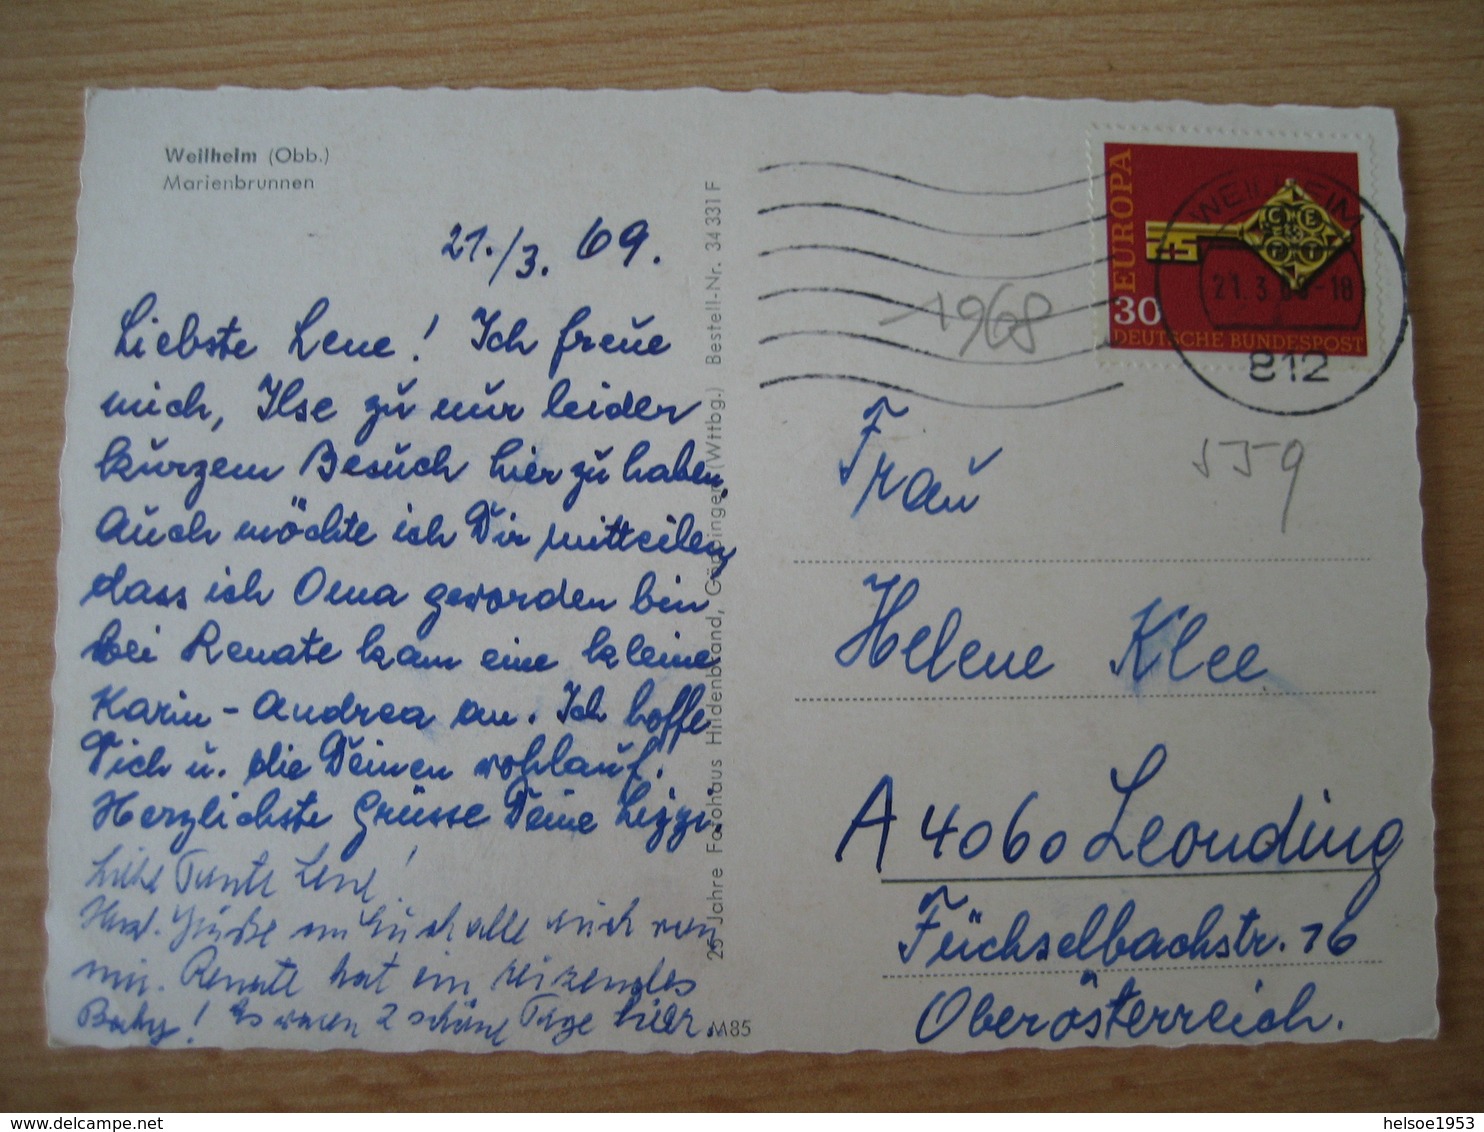 Weilheim (Obb.)
Marienbrunnen
21./3. 69.
Liebste Lene! Ich freue
mich, Ilse zu nur leider
kurzem Besuch hier zu haben.
Auch möchte ich Dir mitteilen,
dass ich Oma geworden bin
bei Renate kam eine kleine
Karin-Andrea an. Ich hoffe
Dich u. die Deinen wohlauf.
Herzlichste Grüsse Deine Lizzi.
Liebe Tante Lene!
Herzl. Grüße an Euch alle auch von
mir. Renate hat ein reizendes
Baby! Es waren 2 schöne Tage hier.
25 Jahre Fotohaus Hildenbrand, Göppingen (Wttbg.) Bestell-Nr. 34 331 F
M85
EUROPA
30
DEUTSCHE BUNDESPOST
CEPT
WEILHEIM
21.3.69-18
812
1968
559
Frau
Helene Klee
A 4060 Leonding
Füchselbachstr. 16
Oberösterreich.
helsoe1953